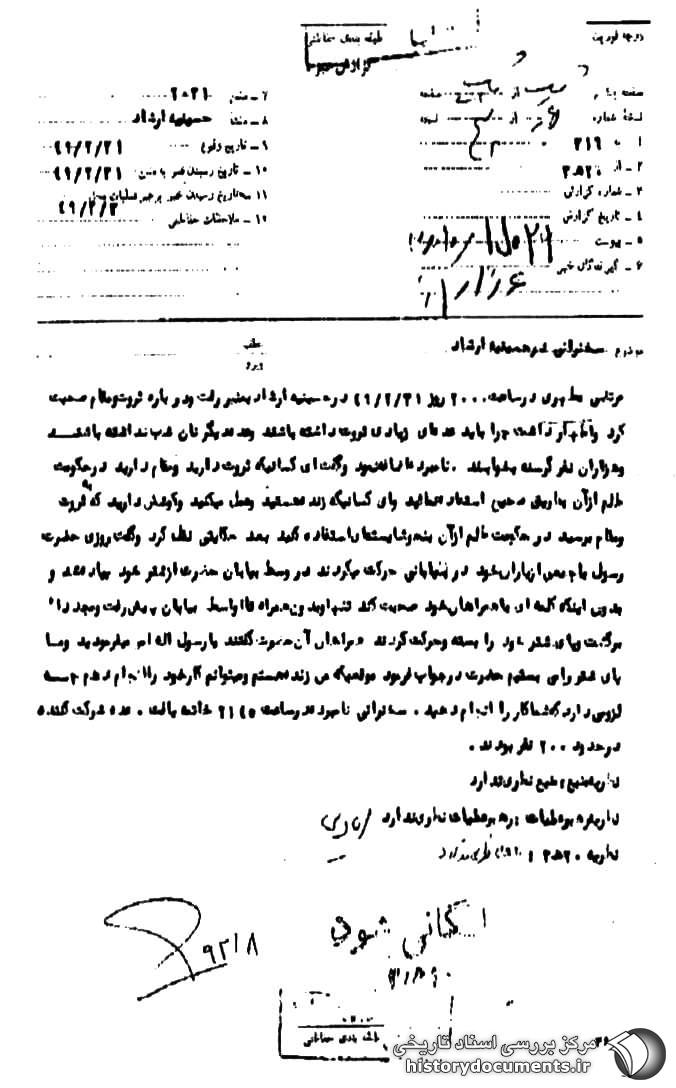 درجه فوریت
طبقه بندی حفاظتی
گزارش خبر
صفحه یک از یک صفحه
نسخه شماره از نسخه
۱ ـ به ۳۱۶
۲ ـ از ۲۰ ه ۳
۳ ـ شماره گزارش
۴ ـ تاریخ گزارش
۵ ـ پیوست
۶ ـ گیرندگان خبر
۷ ـ منبع ۲۰۲۱
۸ ـ منشأ حسینیه ارشاد
۹ ـ تاریخ وقوع ۴۹/۲/۳۱
۱۰ ـ تاریخ رسیدن خبر به منبع ۴۹/۲/۳۱
۱۱ ـ تاریخ رسیدن خبر به رهبر عملیات ۴۹/۳/۳
۱۲ ـ ملاحظات حفاظتی
موضوع سخنرانی در حسینیه ارشاد
مرتضی مطهری در ساعت ۲۰۰۰ روز ۴۹/۲/۳۱ در حسینیه ارشاد بمنبر رفت و درباره ثروت و مقام صحبت
کرد و اظهار داشت چرا باید عده‌ای زیادی ثروت داشته باشند و عده دیگر نان شب نداشته باشند
و هزاران نفر گرسنه بخوابند . نامبرده اضافه نمود و گفت ای کسانیکه ثروت دارید و مقام دارید در حکومت
ظالم از آن بطریق صحیح استفاده نمائید وای کسانیکه زنده هستید و عمل میکنید و کوشش دارید که به ثروت
و مقام برسید در حکومت ظالم از آن بنحو شایسته استفاده کنید بعد حکایتی نقل کرد و گفت روزی حضرت
رسول با جمعی از یاران خود در بیابانی حرکت میکردند در وسط بیابان حضرت از شتر خود پیاده شد و
بدون اینکه کلمه ای با همراهان خود صحبت کند تنها و بدون همراه تا اواسط بیابان پیش رفت و مجددا"
برگشت و پای شتر خود را بسته و حرکت کردند همراهان آن حضرت گفتند یا رسول اله امر میفرمودید و ما
پای شتر را می بستیم حضرت در جواب فرمود موقعیکه من زنده هستم و میتوانم کار خود را انجام دهم چه
لزومی دارد که شما کار را انجام دهید . سخنرانی نامبرده در ساعت ۲۱۴۵ خاتمه یافت . عده شرکت کننده
در حدود ۲۰۰ نفر بودند .
نظریه منبع : منبع نظری ندارد
نظریه رهبر عملیات : رهبر عملیات نظری ندارد
نظریه ۲۰ ه ۳ : نظری ندارد
بایگانی شود
طبقه بندی حفاظتی
مرکز بررسی اسناد تاریخی
historydocuments.ir